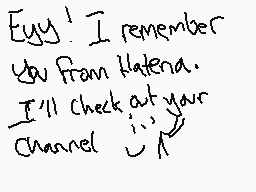 Eyy! I remember
you from Hatena.
I'll check out your
channel